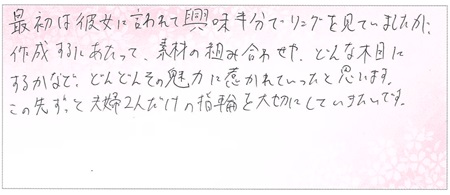 最初は彼女に言われて興味半分でリングを見ていましたが、
作成するにあたって、素材の組み合わせや、どんな木目に
するかなど、どんどんその魅力に惹かれていったと思います。
この先ずっと夫婦2人だけの指輪を大切にしていきたいです。